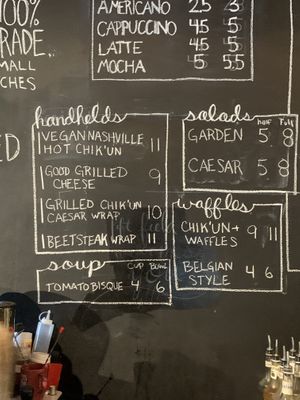 100%
RADE.
SMALL
CHES
AMERICANO 2.5 3
CAPPUCCINO 4.5 5
LATTE 4.5 5
MOCHA 5 5.5
handhelds
VEGAN NASHVILLE
HOT CHIK'UN 11
GOOD GRILLED
CHEESE 9
GRILLED CHIK'UN
CAESAR WRAP 10
BEETSTEAK WRAP 11
soup CUP BOWL
TOMATO BISQUE 4 6
salads half Full
GARDEN 5 8
CAESAR 5 8
waffles
CHIK'UN +
WAFFLES 9 11
BELGIAN
STYLE 4 6